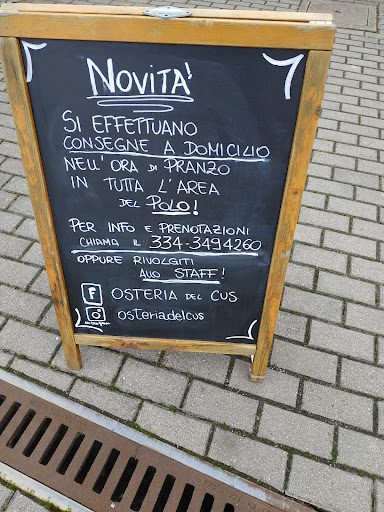 NOVITA'
SI EFFETTUANO
CONSEGNE A DOMICILIO
NELL'ORA DI PRANZO
IN TUTTA L'AREA
DEL POLO!
PER INFO E PRENOTAZIONI
CHIAMA IL 334-3494260
OPPURE RIVOLGITI
ALLO STAFF!
f OSTERIA DEL CUS
osteriadelcus